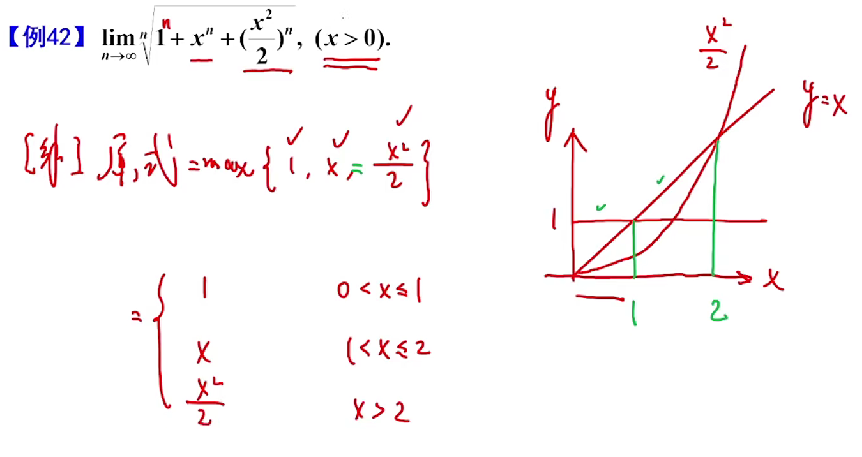 【例42】 lim n→∞ ⁿ√(1ⁿ + xⁿ + (x²/2)ⁿ), (x > 0).
[解] 原式 = max { 1, x, = x²/2 }
= { 1 0 < x ≤ 1
x 1 < x ≤ 2
x²/2 x > 2
x²/2
y
y=x
1
x
1 2